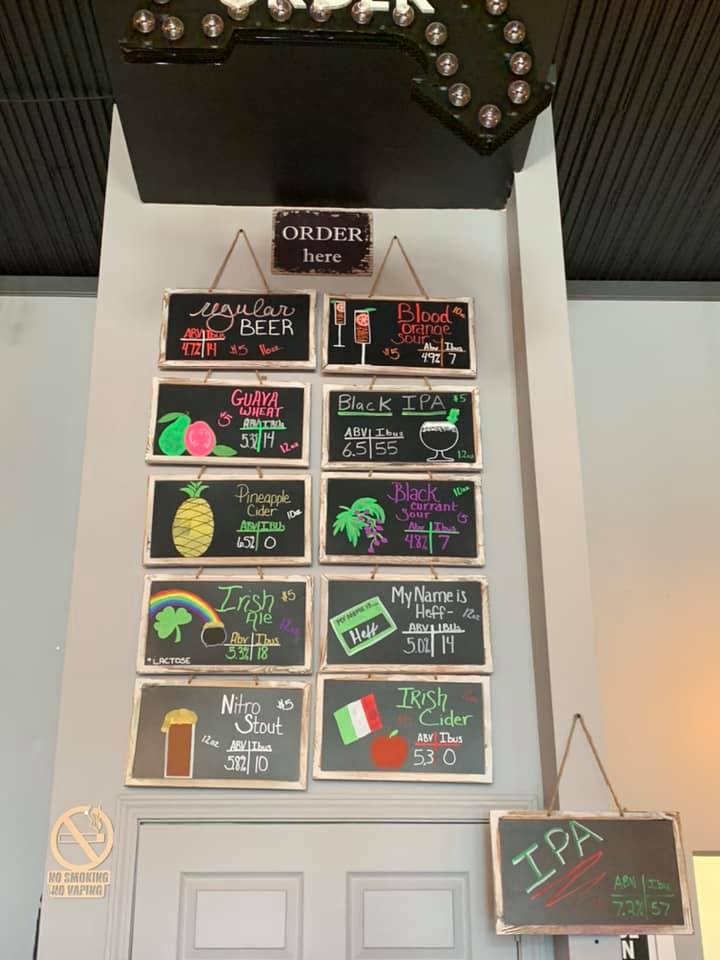 ORDER
ORDER
here
regular
BEER
ABV Ibus
4.7% 14 $5 16oz
Blood 10oz
Orange
Sour
$5 Abv Ibus
4.9% 7
GUAVA
WHEAT
$5 ABV IBUs
5.3% 14 12oz
Black IPA $5
ABV Ibus
6.5 55
12oz
Pineapple
Cider 10oz
ABV IBUs
6.5% 0
Black 10oz
Currant
Sour
Abv Ibus
4.8% 7
Irish $5
Ale 12oz
Abv Ibus
5.3% 18
*LACTOSE
My Name is
Heff- 12oz
MY NAME IS...
Heff
ABV IBUs
5.0% 14
Nitro $5
Stout
12oz ABV Ibus
5.8% 10
IRISH
Cider
ABV Ibus
5.3 0
NO SMOKING
NO VAPING
IPA
ABV Ibu
7.2% 57
N